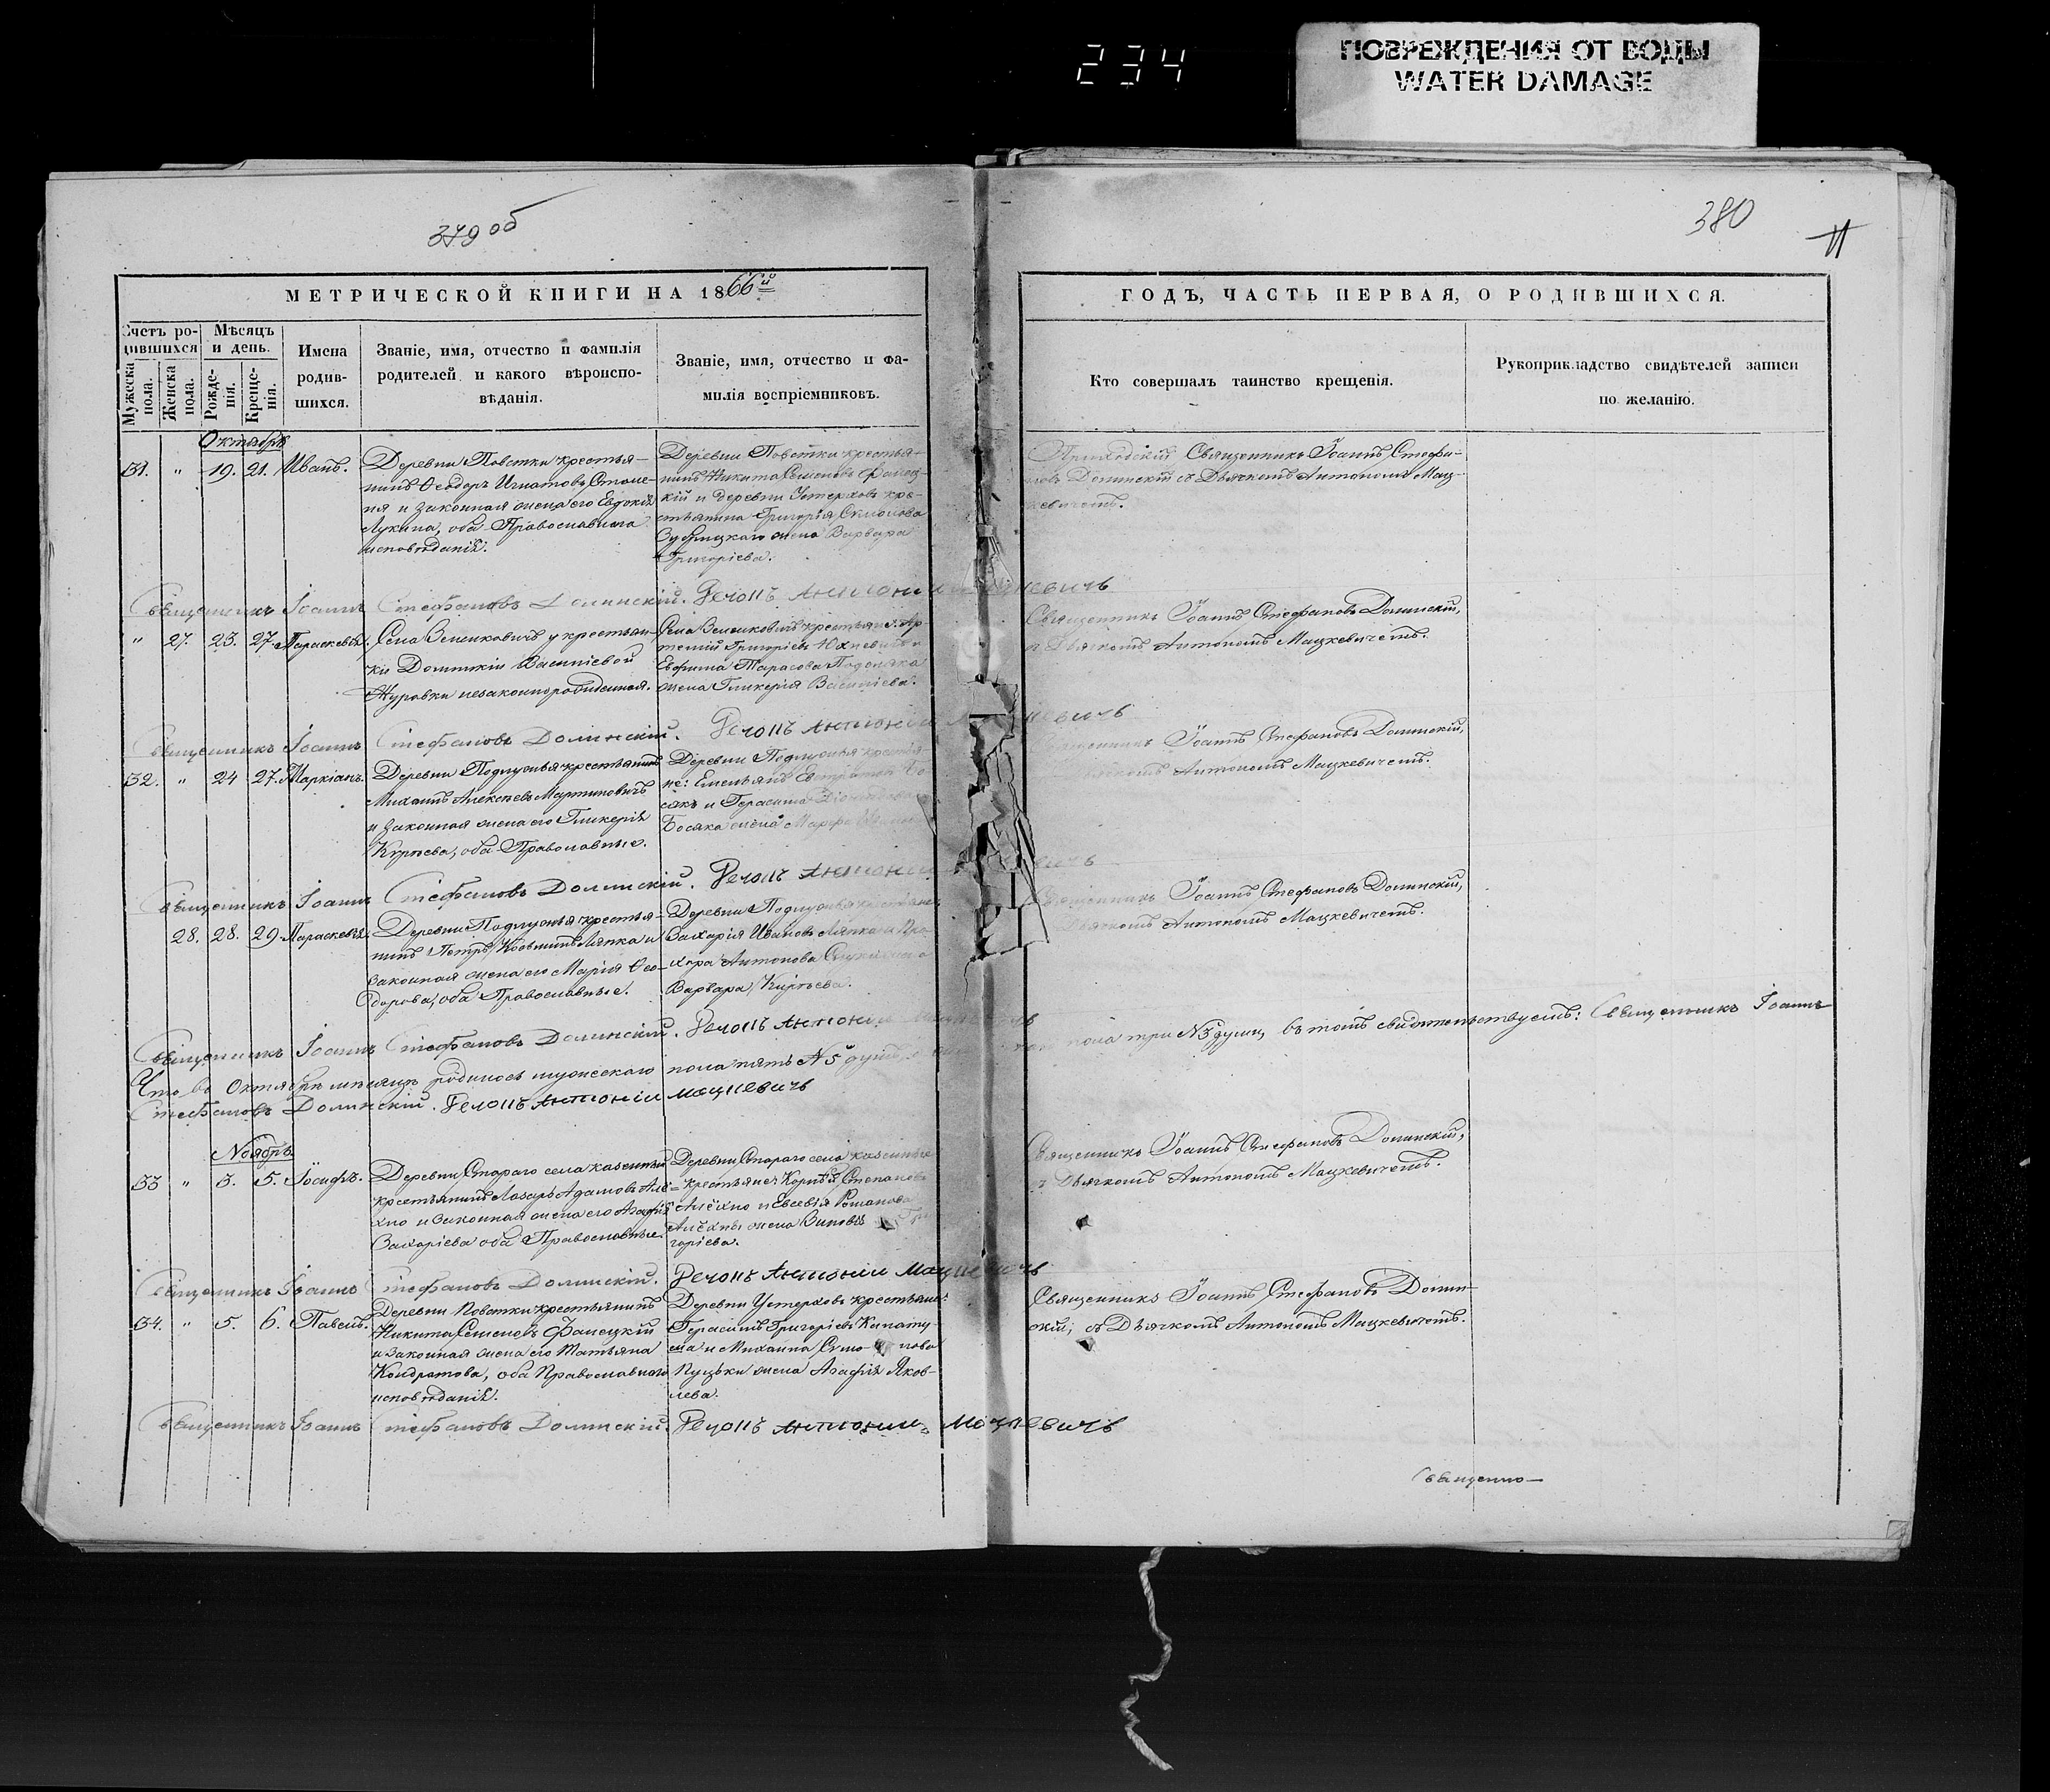 234
ПОВРЕЖДЕНИЯ ОТ ВОДЫ
WATER DAMAGE
379 об
380
МЕТРИЧЕСКОЙ КНИГИ НА 1866й
Счетъ родившихся
Мѣсяцъ и день.
Мужеска пола.
Женска пола.
Рожденія.
Крещенія.
Имена
родив-
шихся.
Званіе, имя, отчество и фамилія
родителей и какого вѣроиспо-
вѣданія.
Званіе, имя, отчество и фа-
милія воспріемниковъ.
ГОДЪ, ЧАСТЬ ПЕРВАЯ, О РОДИВШИХСЯ.
Кто совершалъ таинство крещенія.
Рукоприкладство свидѣтелей записи
по желанію.
Октябрь
31. " 19. 21. Иванъ.
Деревни Повстки крестья-
нинъ Ѳеодоръ Игнатовъ
и законная жена его Евдокія
Лукина, оба Православнаго
исповѣданія.
Деревни Повстки крестья-
нинъ Никита Семеновъ Фанец-
кій и деревни Устерховъ кре-
стьянина Григорія
жена Варвара
Григоріева.
Приходскій Священникъ Іоаннъ Стефа-
новъ Долинскій съ Дьячкомъ Антономъ Мац-
кевичемъ.
Священникъ Іоаннъ Стефановъ Долинскій.
" 27. 23. 27. Параскевія.
Села Велесковичъ у крестьян-
ки Домникіи Василіевой
Журовки незаконнорожденная.
Села Велесковичъ крестьяне: Ар-
темій Григоріевъ и
Евфима Тарасова
жена Гликерія Василіева.
Священникъ Іоаннъ Стефановъ Долинскій,
съ Дьячкомъ Антономъ Мацкевичемъ.
Священникъ Іоаннъ Стефановъ Долинскій.
32. " 24 27. Маркіанъ.
Деревни Подлужья крестьянинъ
Михаилъ Алексѣевъ Мартиновичъ
и законная жена его Гликерія
Кирѣева, оба Православные.
Деревни Подлужья крестья-
не: Емельянъ Бо-
сякъ и Герасима
Босяка жена Марфа
Іоаннъ Стефановъ Долинскій,
Антономъ Мацкевичемъ.
Священникъ Іоаннъ Стефановъ Долинскій.
28. 28. 29. Параскевія.
Деревни Подлужья крестья-
нинъ Петръ Ляпка и
законная жена его Марія Ѳео-
дорова, оба Православные.
Деревни Подлужья
Захарія Ивановъ Ляпка и Про-
хора Антонова
Варвара Кирѣева.
Священникъ Іоаннъ Стефановъ Долинскій,
Дьячкомъ Антономъ Мацкевичемъ.
Священникъ Іоаннъ Стефановъ Долинскій.
Что въ Октябрѣ мѣсяцѣ родилось мужескаго пола пять № 5 душъ пола три № 3 души, въ томъ свидѣтельствуемъ: Священникъ Іоаннъ
Стефановъ Долинскій. Антоній Мацкевичъ
Ноябрь
33 " 3. 5. Іосифъ.
Деревни Стараго села казенный
крестьянинъ Лазарь Адамовъ Алё-
хно и законная жена его Агафія
Захаріева оба Православные.
Деревни Стараго села казенные
крестьяне: Корнѣй Степановъ
Алёхно и Евсевія Романова
Алёхны жена Зиновія Гри-
горіева.
Священникъ Іоаннъ Стефановъ Долинскій,
съ Дьячкомъ Антономъ Мацкевичемъ.
Священникъ Іоаннъ Стефановъ Долинскій. Антоній Мацкевичъ
34. " 5. 6. Павелъ.
Деревни Повстки крестьянинъ
Никита Семеновъ Фанецкій
и законная жена его Татьяна
Кондратова, оба Православнаго
исповѣданія.
Деревни Устерховъ крестьяне:
Герасимъ Григоріевъ
и Михаила
жена Агафія Яков-
лева.
Священникъ Іоаннъ Стефановъ Долин-
скій, съ Дьячкомъ Антономъ Мацкевичемъ.
Священникъ Іоаннъ Стефановъ Долинскій. Антоній Мацкевичъ
Священно-